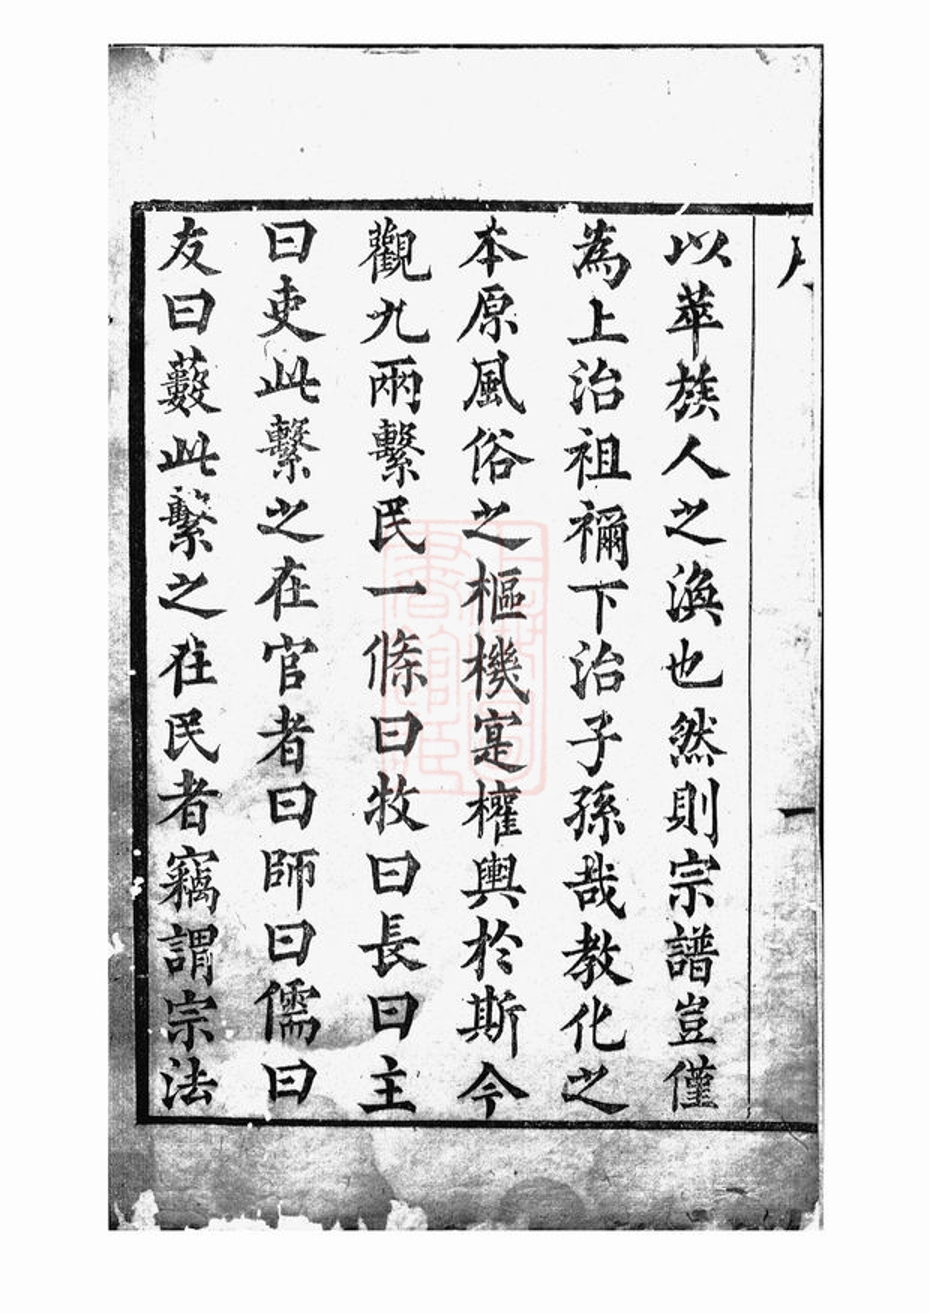 以萃族人之渙也然則宗譜豈僅
為上治祖禰下治子孫哉教化之
本原風俗之樞機寔權輿於斯今
觀九兩繫民一條曰牧曰長曰主
曰吏此繫之在官者曰師曰儒曰
友曰藪此繫之在民者竊謂宗法